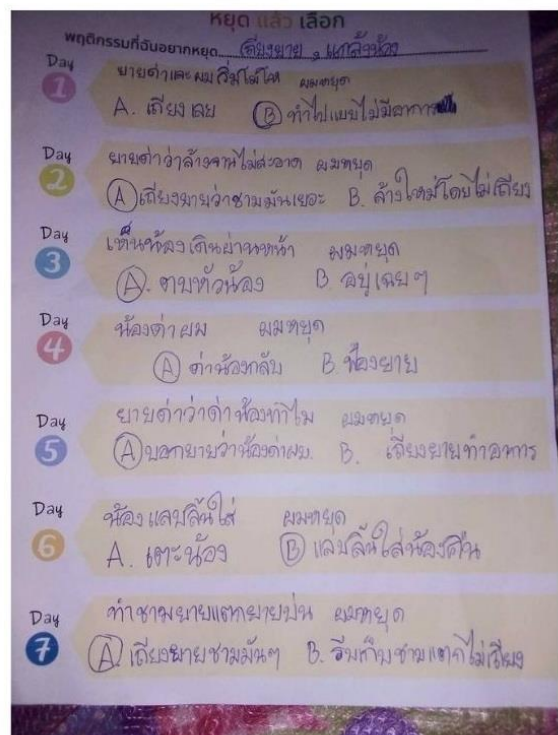 หยุด แล้ว เลือก
พฤติกรรมที่ฉันอยากหยุด เถียงยาย , แกล้งน้อง
Day 1
ยายด่าและผมเริ่มโมโห ผมหยุด
A. เถียงเลย B ทำไปแบบไม่มีอาการ
Day 2
ยายด่าว่าล้างจานไม่สะอาด ผมหยุด
A เถียงยายว่าชามมันเยอะ B. ล้างใหม่โดยไม่เถียง
Day 3
เห็นน้องเดินผ่านหน้า ผมหยุด
A. ตบหัวน้อง B อยู่เฉยๆ
Day 4
น้องด่าผม ผมหยุด
A ด่าน้องกลับ B. ฟ้องยาย
Day 5
ยายด่าว่าด่าน้องทำไม ผมหยุด
A บอกยายว่าน้องด่าผม. B. เถียงยายทำอาการ
Day 6
น้องแลบลิ้นใส่ ผมหยุด
A. เตะน้อง B แลบลิ้นใส่น้องคืน
Day 7
ทำชามยายแตกยายบ่น ผมหยุด
A เถียงยายชามมันๆ B. รีบเก็บชามแตกไม่เถียง